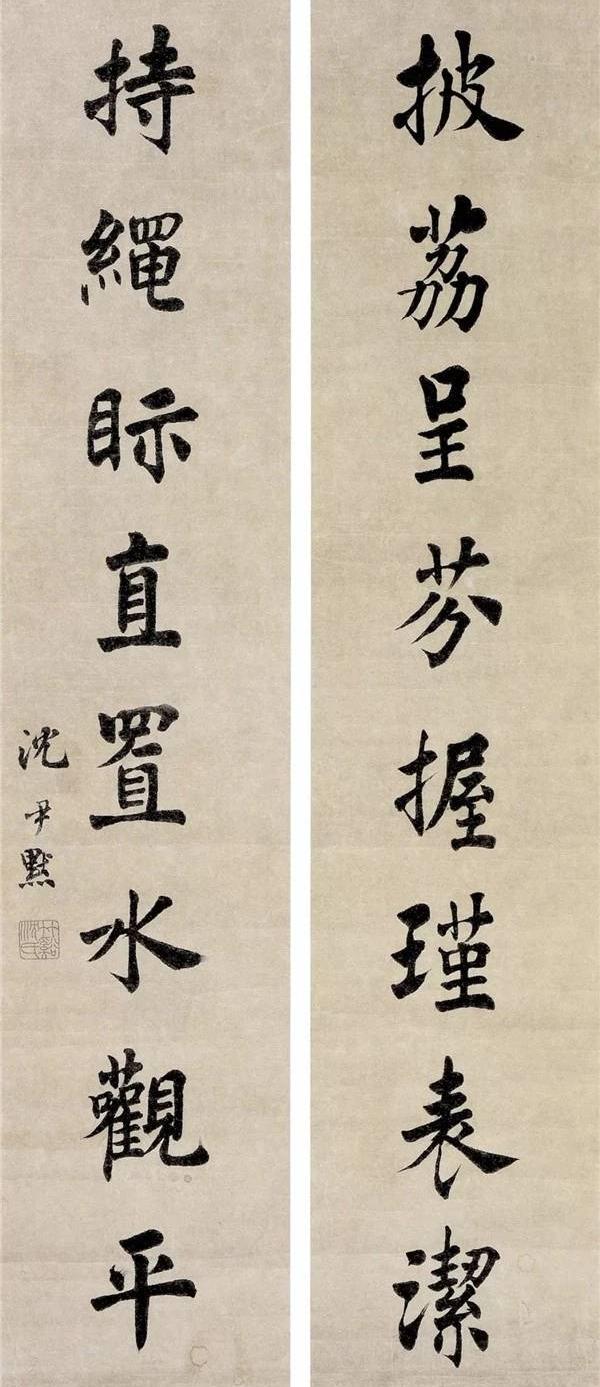 披荔呈芬握瑾表潔
持繩眎直置水觀平
沈尹默
竹谿沈氏